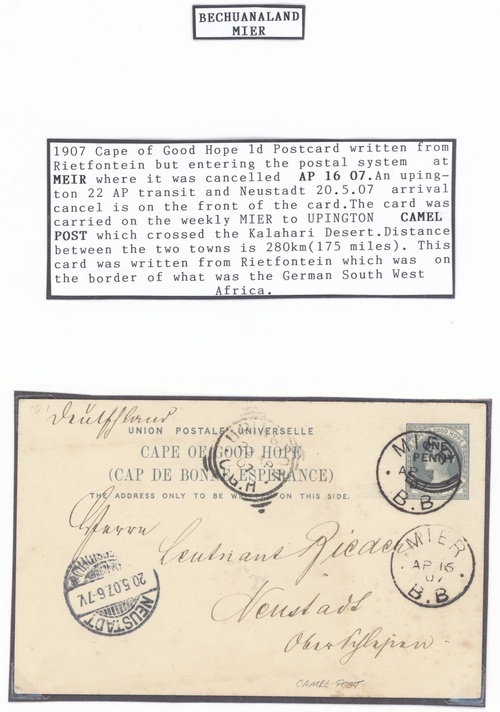 BECHUANALAND
MIER
1907 Cape of Good Hope 1d Postcard written from
Rietfontein but entering the postal system at
MEIR where it was cancelled AP 16 07.An uping-
ton 22 AP transit and Neustadt 20.5.07 arrival
cancel is on the front of the card.The card was
carried on the weekly MIER to UPINGTON CAMEL
POST which crossed the Kalahari Desert.Distance
between the two towns is 280km(175 miles). This
card was written from Rietfontein which was on
the border of what was the German South West
Africa.
Deutschland
UNION POSTALE UNIVERSELLE
CAPE OF GOOD HOPE
(CAP DE BONNE ESPERANCE)
THE ADDRESS ONLY TO BE WRITTEN ON THIS SIDE.
ONE
PENNY
MIER
AP
B.B
C.G.H
Herrn
Leutnant Rieder
MIER
AP 16
07
B.B
20.5.07.6-7V.
NEUSTADT
Neustadt
Oberschlesien
CAMEL POST